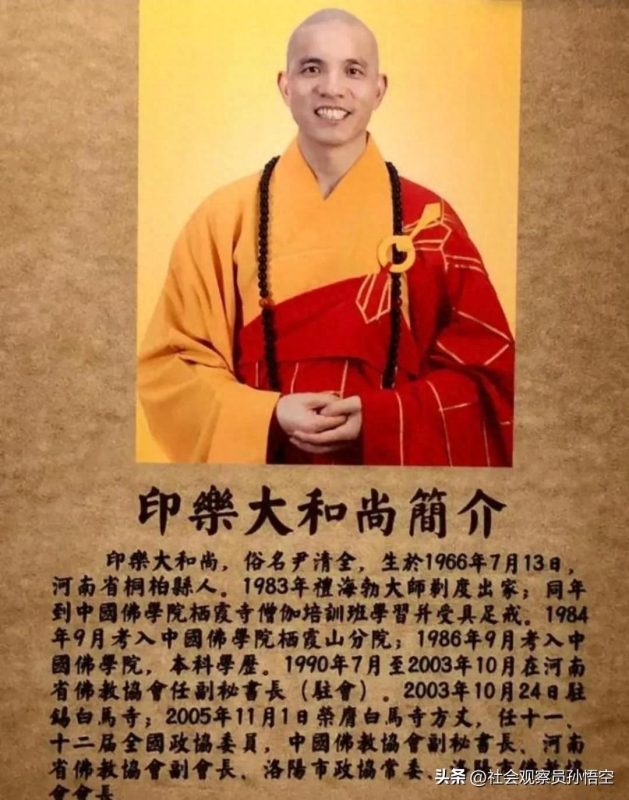 印樂大和尚簡介
印樂大和尚，俗名尹清全，生於1966年7月13日，
河南省桐柏縣人。1983年禮海勃大師剃度出家；同年
到中國佛學院栖霞寺僧伽培訓班學習幷受具足戒。1984
年9月考入中國佛學院栖霞山分院；1986年9月考入中
國佛學院，本科學歷。1990年7月至2003年10月在河南
省佛教協會任副秘書長（駐會）。2003年10月24日駐
錫白馬寺；2005年11月1日榮膺白馬寺方丈，任十一、
十二届全國政協委員，中國佛教協會副秘書長、河南
省佛教協會副會長、洛陽市政協常委、洛陽市佛教協
會會長
头条 @社会观察员孙悟空